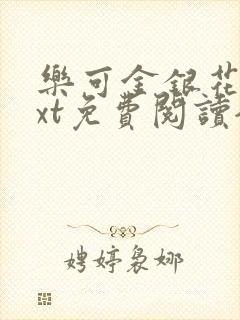 樂可金銀花
xt免費閱讀
娉婷裊娜